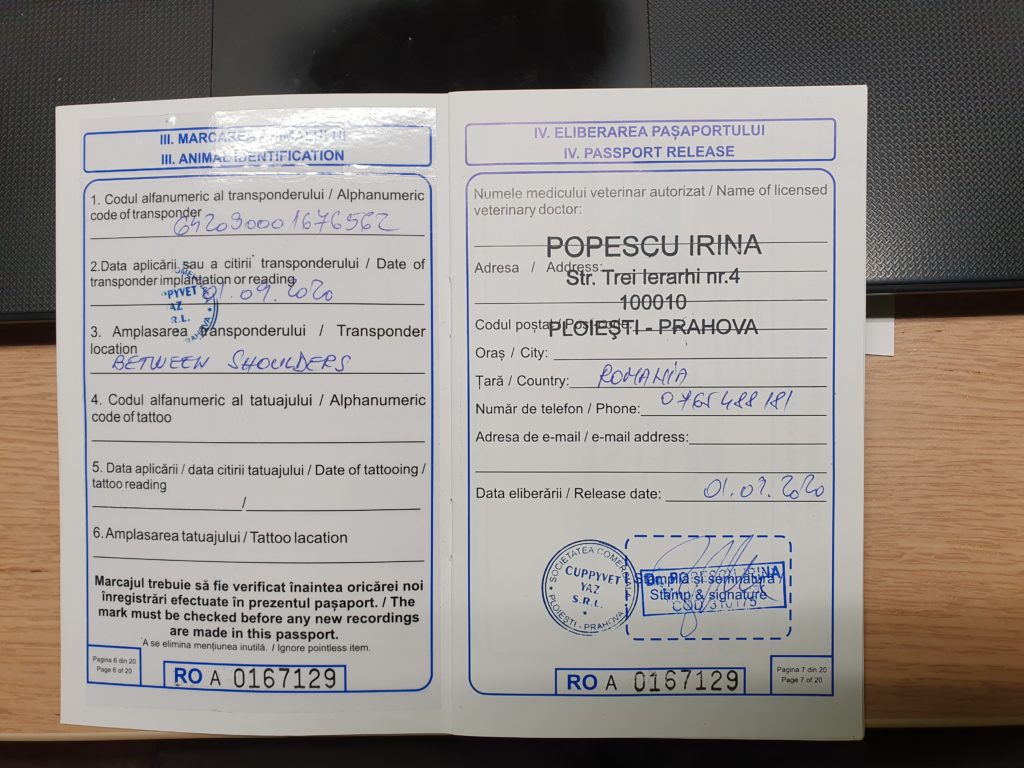 III. MARCAREA ANIMALULUI
III. ANIMAL IDENTIFICATION
1. Codul alfanumeric al transponderului / Alphanumeric
code of transponder
642090001676562
2.Data aplicării sau a citirii transponderului / Date of
transponder implantation or reading
01.09.2020
PPYVET
YAZ
S.R.L.
PRAHOVA
3. Amplasarea transponderului / Transponder
location
BETWEEN SHOULDERS
4. Codul alfanumeric al tatuajului / Alphanumeric
code of tattoo
5. Data aplicării / data citirii tatuajului / Date of tattooing /
tattoo reading
/
6.Amplasarea tatuajului / Tattoo lacation
Marcajul trebuie să fie verificat înaintea oricărei noi
înregistrări efectuate în prezentul pașaport. / The
mark must be checked before any new recordings
are made in this passport.
A se elimina mențiunea inutilă. / Ignore pointless item.
Pagina 6 din 20
Page 6 of 20
RO A 0167129
IV. ELIBERAREA PAȘAPORTULUI
IV. PASSPORT RELEASE
Numele medicului veterinar autorizat / Name of licensed
veterinary doctor:
POPESCU IRINA
Adresa / Address:
Str. Trei Ierarhi nr.4
100010
Codul poștal / Post code:
PLOIEŞTI - PRAHOVA
Oraș / City:
Țară / Country: ROMANIA
Număr de telefon / Phone: 0765488181
Adresa de e-mail / e-mail address:
Data eliberării / Release date: 01.09.2020
SOCIETATEA COMERCIALĂ
CUPPYVET
YAZ
S.R.L.
PLOIEȘTI - PRAHOVA
Dr. POPESCU IRINA
Ștampila și semnătura /
Stamp & signature
Pagina 7 din 20
Page 7 of 20
RO A 0167129